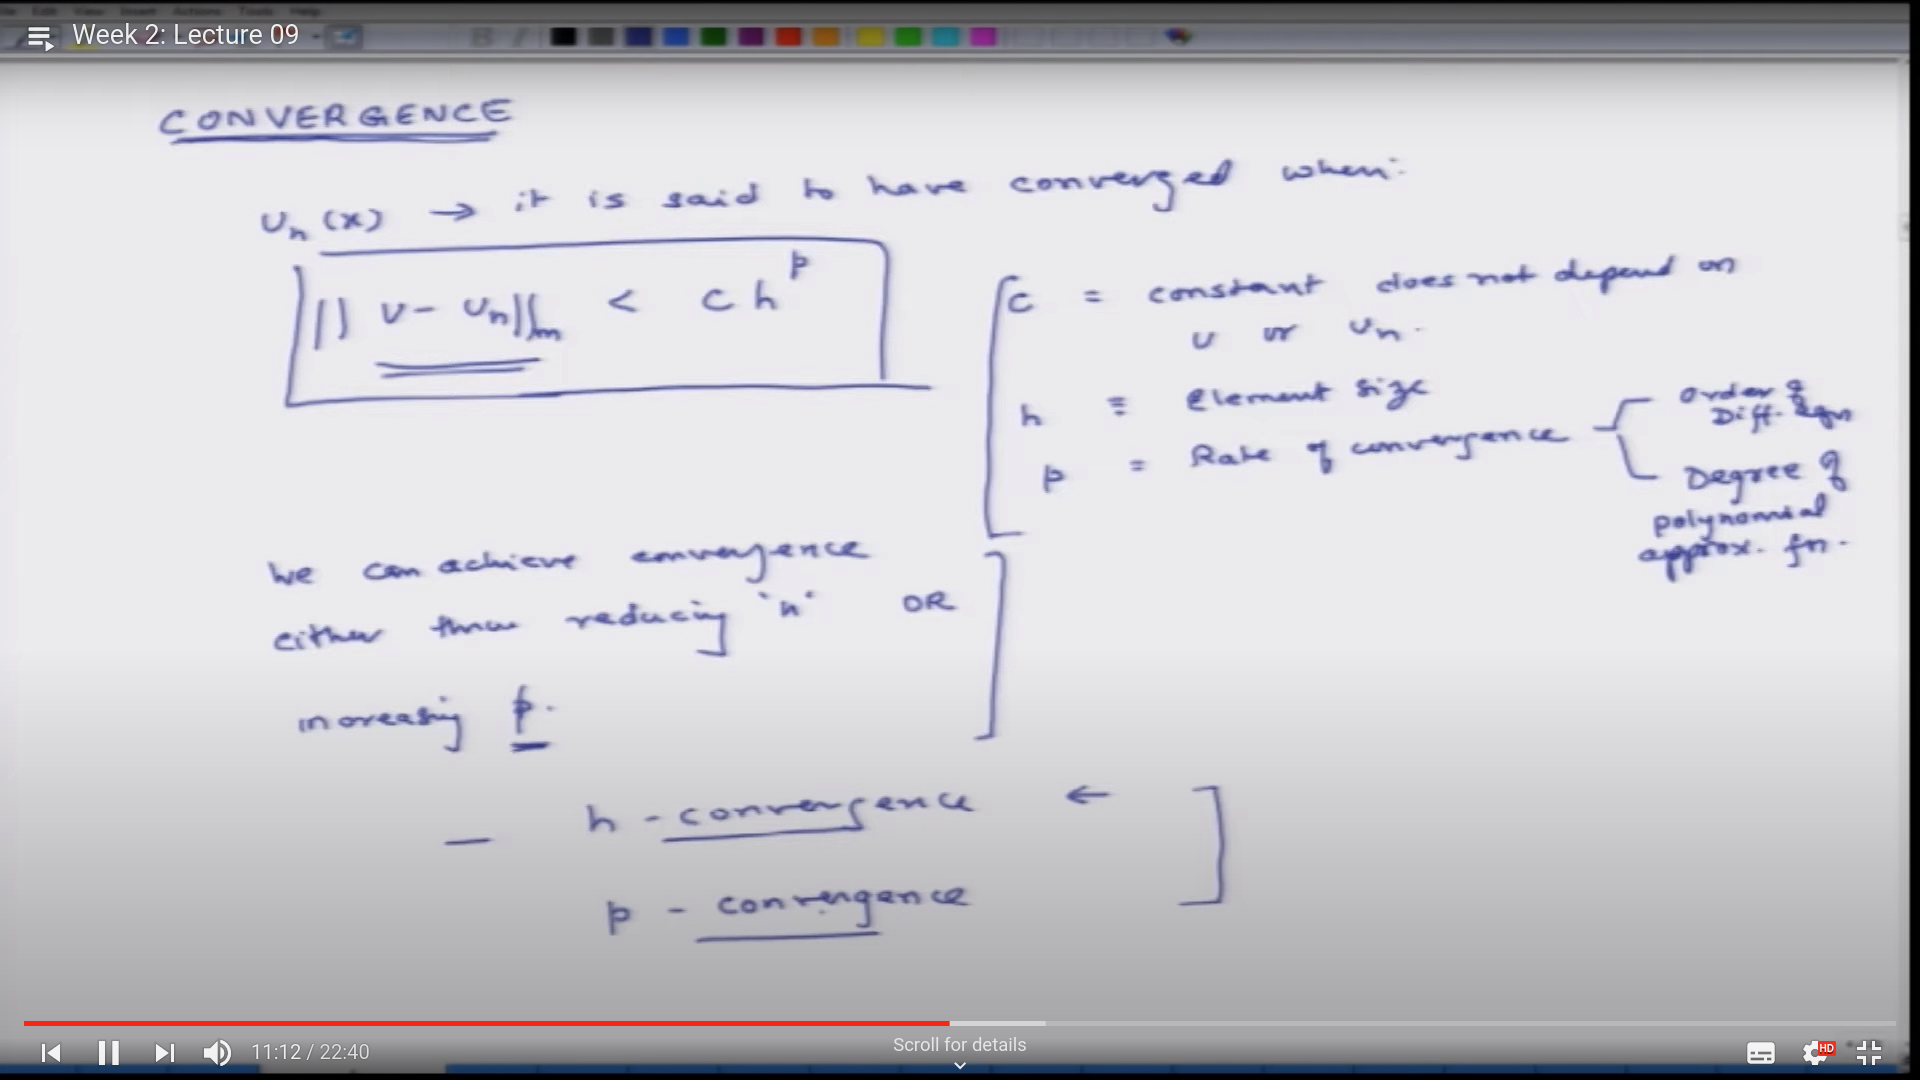 File Edit View Insert Actions Tools Help
Week 2: Lecture 09
CONVERGENCE
Un(x) → it is said to have converged when:
|| u - un ||m < c h^p
c = constant does not depend on
u or un.
h = Element size
p = Rate of convergence
Order of
Diff. Eqn
Degree of
polynomial
approx. fn.
We can achieve convergence
either thru reducing 'h' OR
increasing p.
— h - convergence ←
p - convergence
11:12 / 22:40
Scroll for details
HD